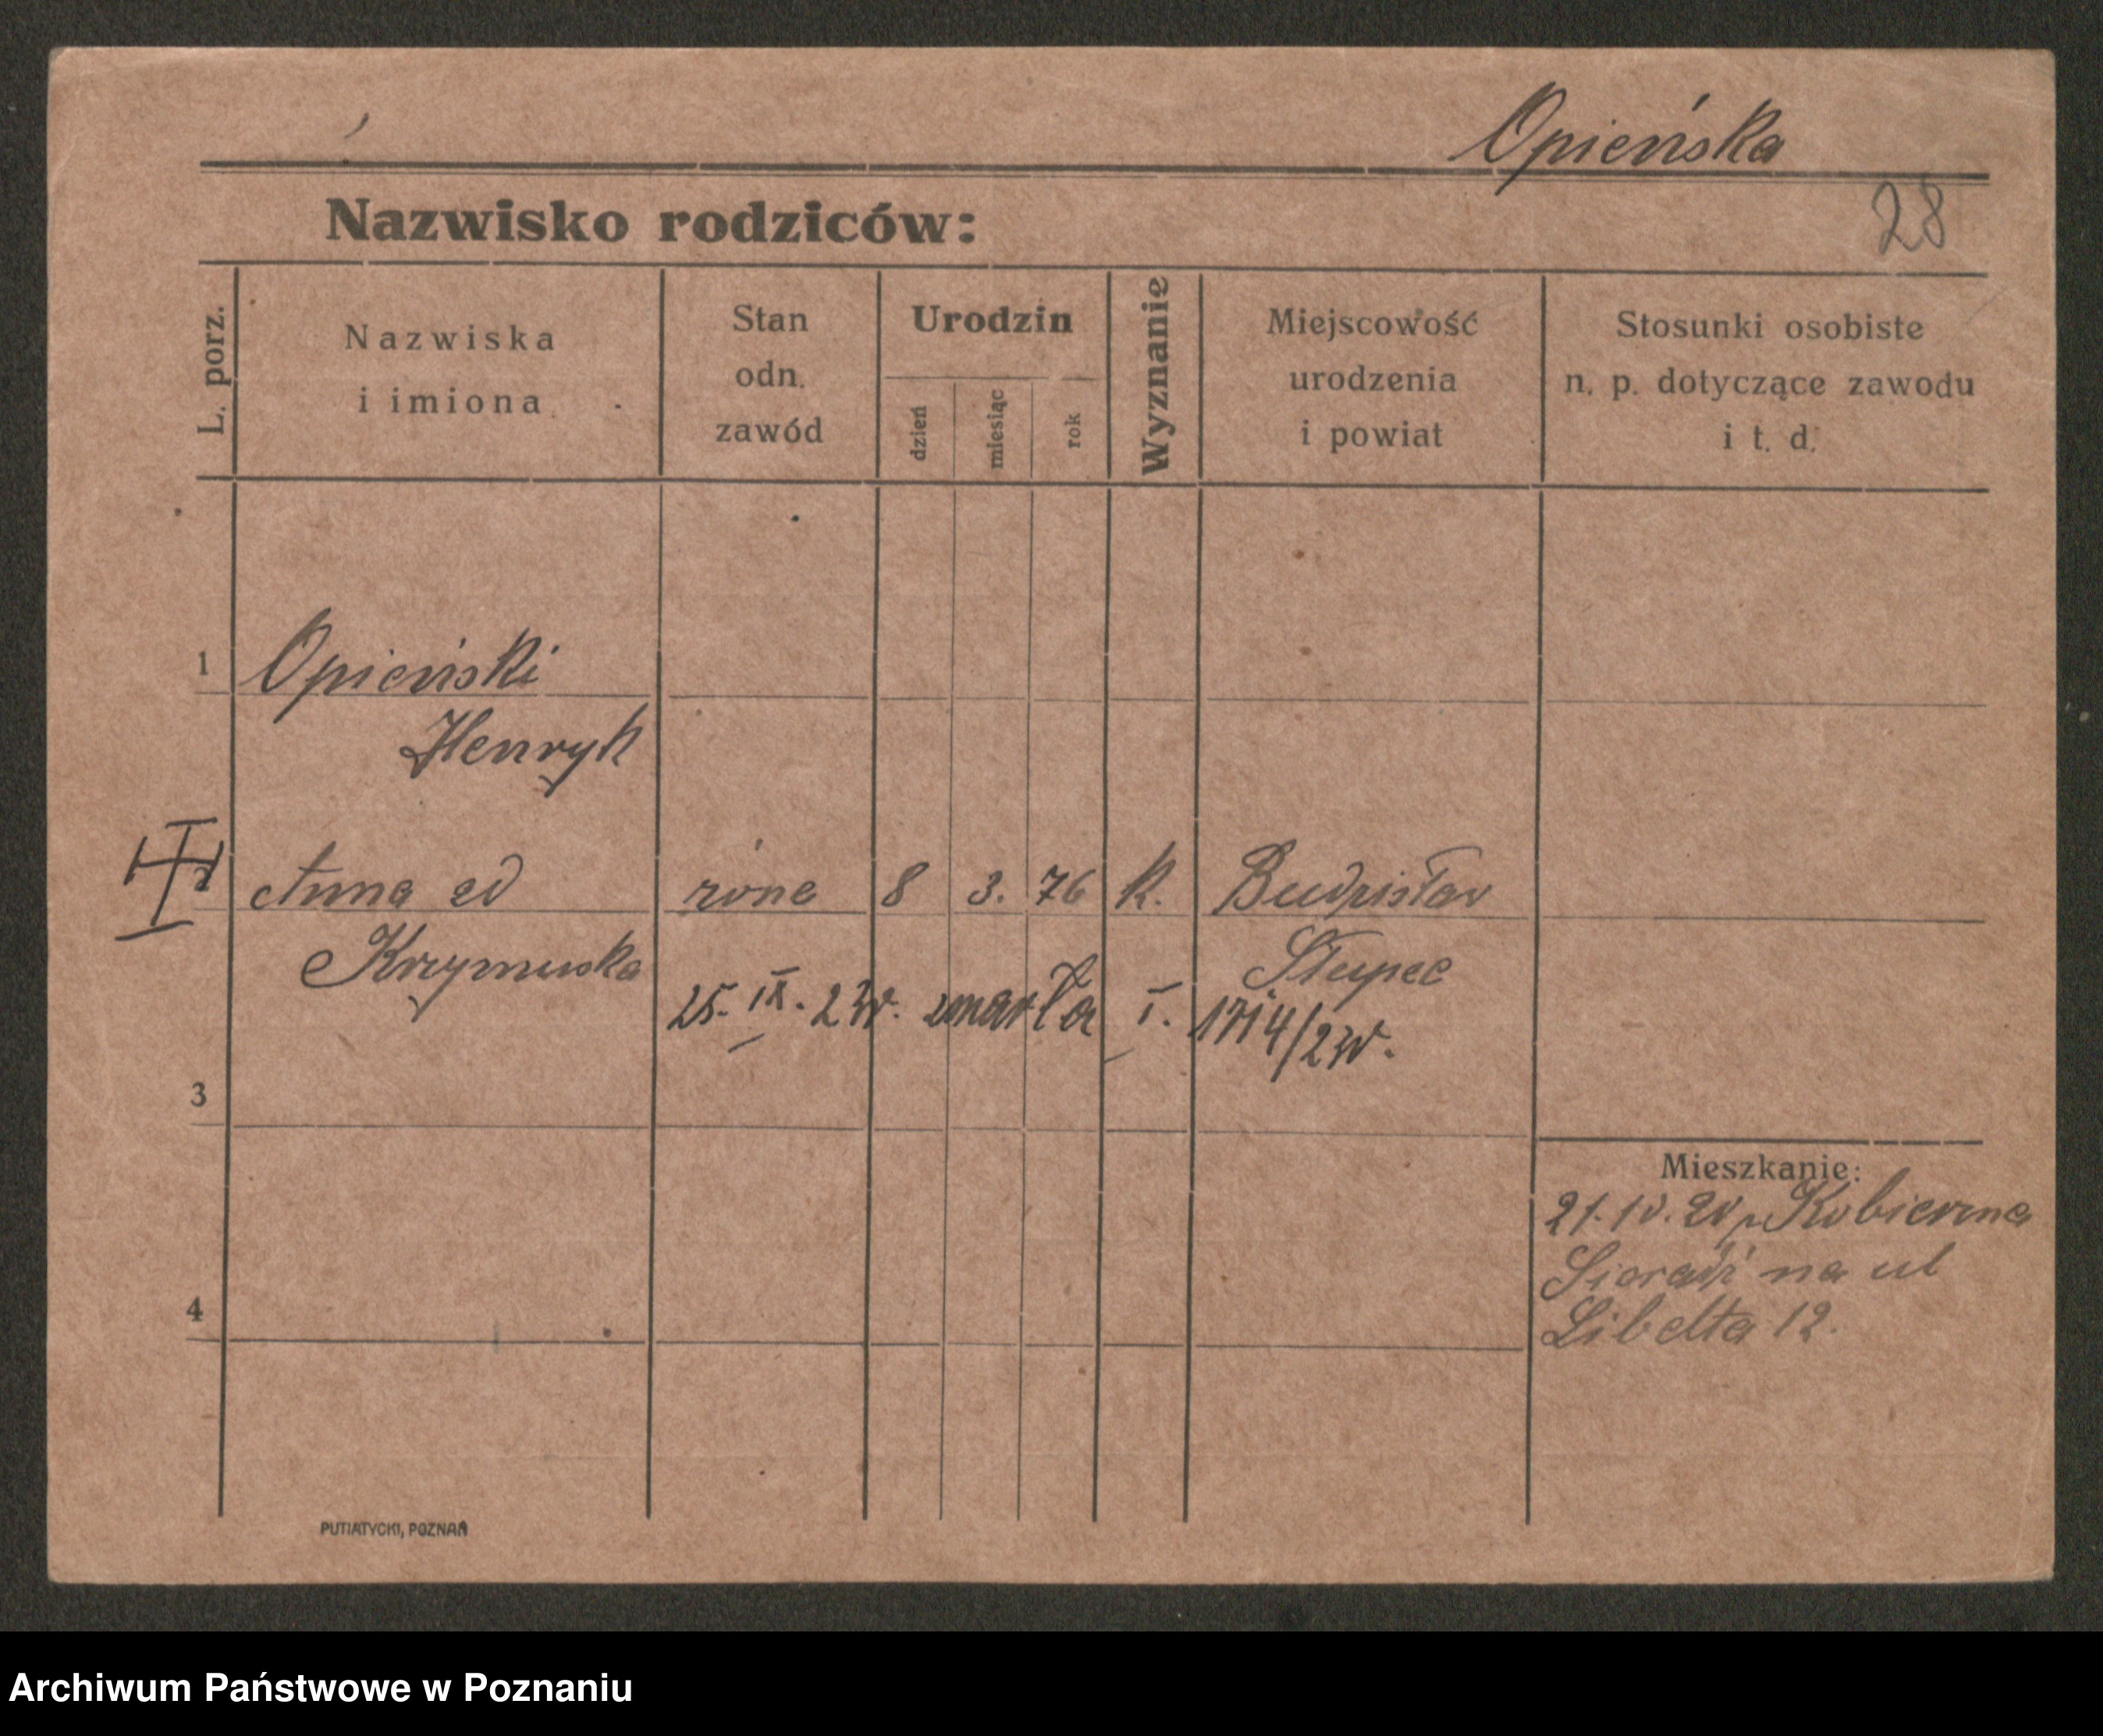 Opieńska
28
Nazwisko rodziców:
L. porz.
Nazwiska
i imiona
Stan
odn.
zawód
Urodzin
dzień
miesiąc
rok
Wyznanie
Miejscowość
urodzenia
i powiat
Stosunki osobiste
n. p. dotyczące zawodu
i t. d.
1 Opieński
Henryk
Anna zd żona 8 3. 76 k. Budzisław
Krzymuska Słupec
25. IX. zmarła I.
3
Mieszkanie:
21.10.
na ul
4 Libelta 12.
PUTIATYCKI, POZNAŃ
Archiwum Państwowe w Poznaniu